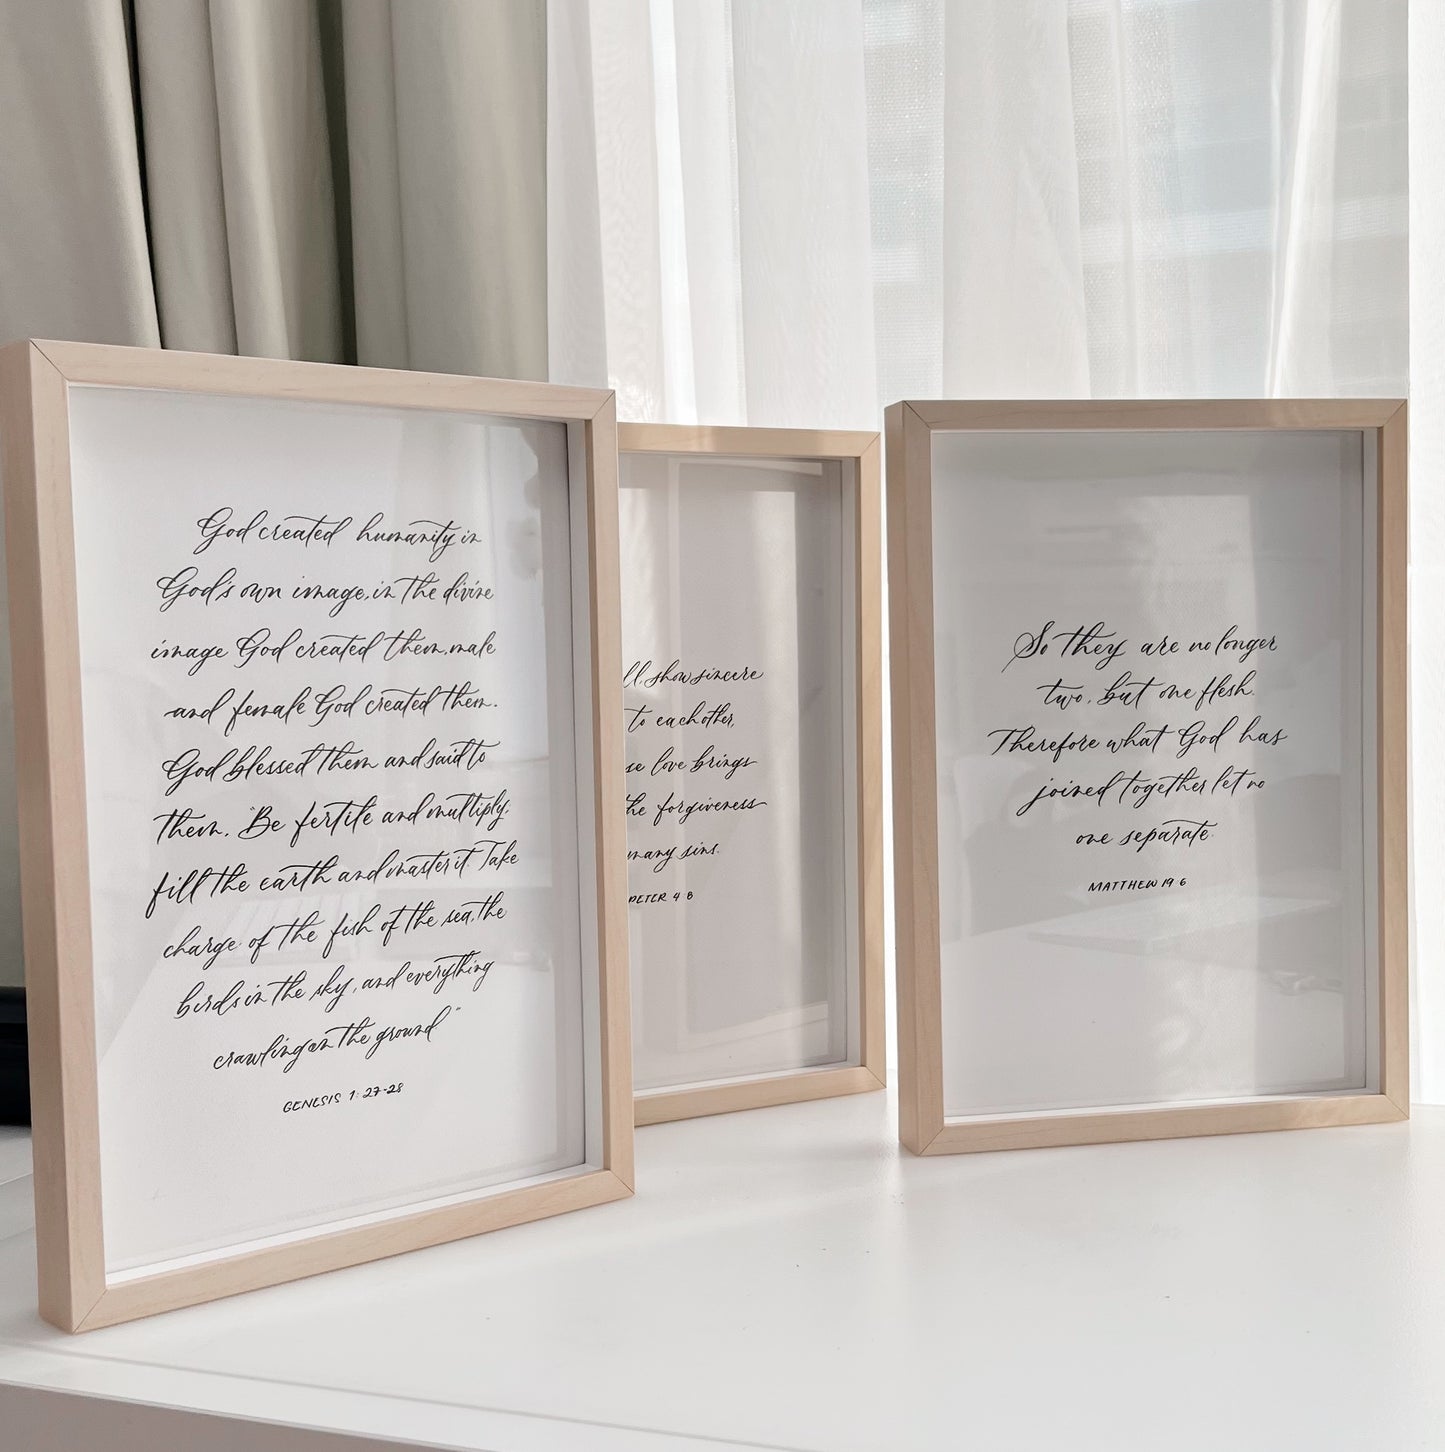 God created humanity in
God's own image, in the divine
image God created them, male
and female God created them.
God blessed them and said to
them, "Be fertile and multiply;
fill the earth and master it. Take
charge of the fish of the sea, the
birds in the sky, and everything
crawling on the ground"
GENESIS 1:27-28
ll, show sincere
to each other,
se love brings
the forgiveness
many sins.
PETER 4:8
So they are no longer
two, but one flesh.
Therefore what God has
joined together let no
one separate.
MATTHEW 19:6